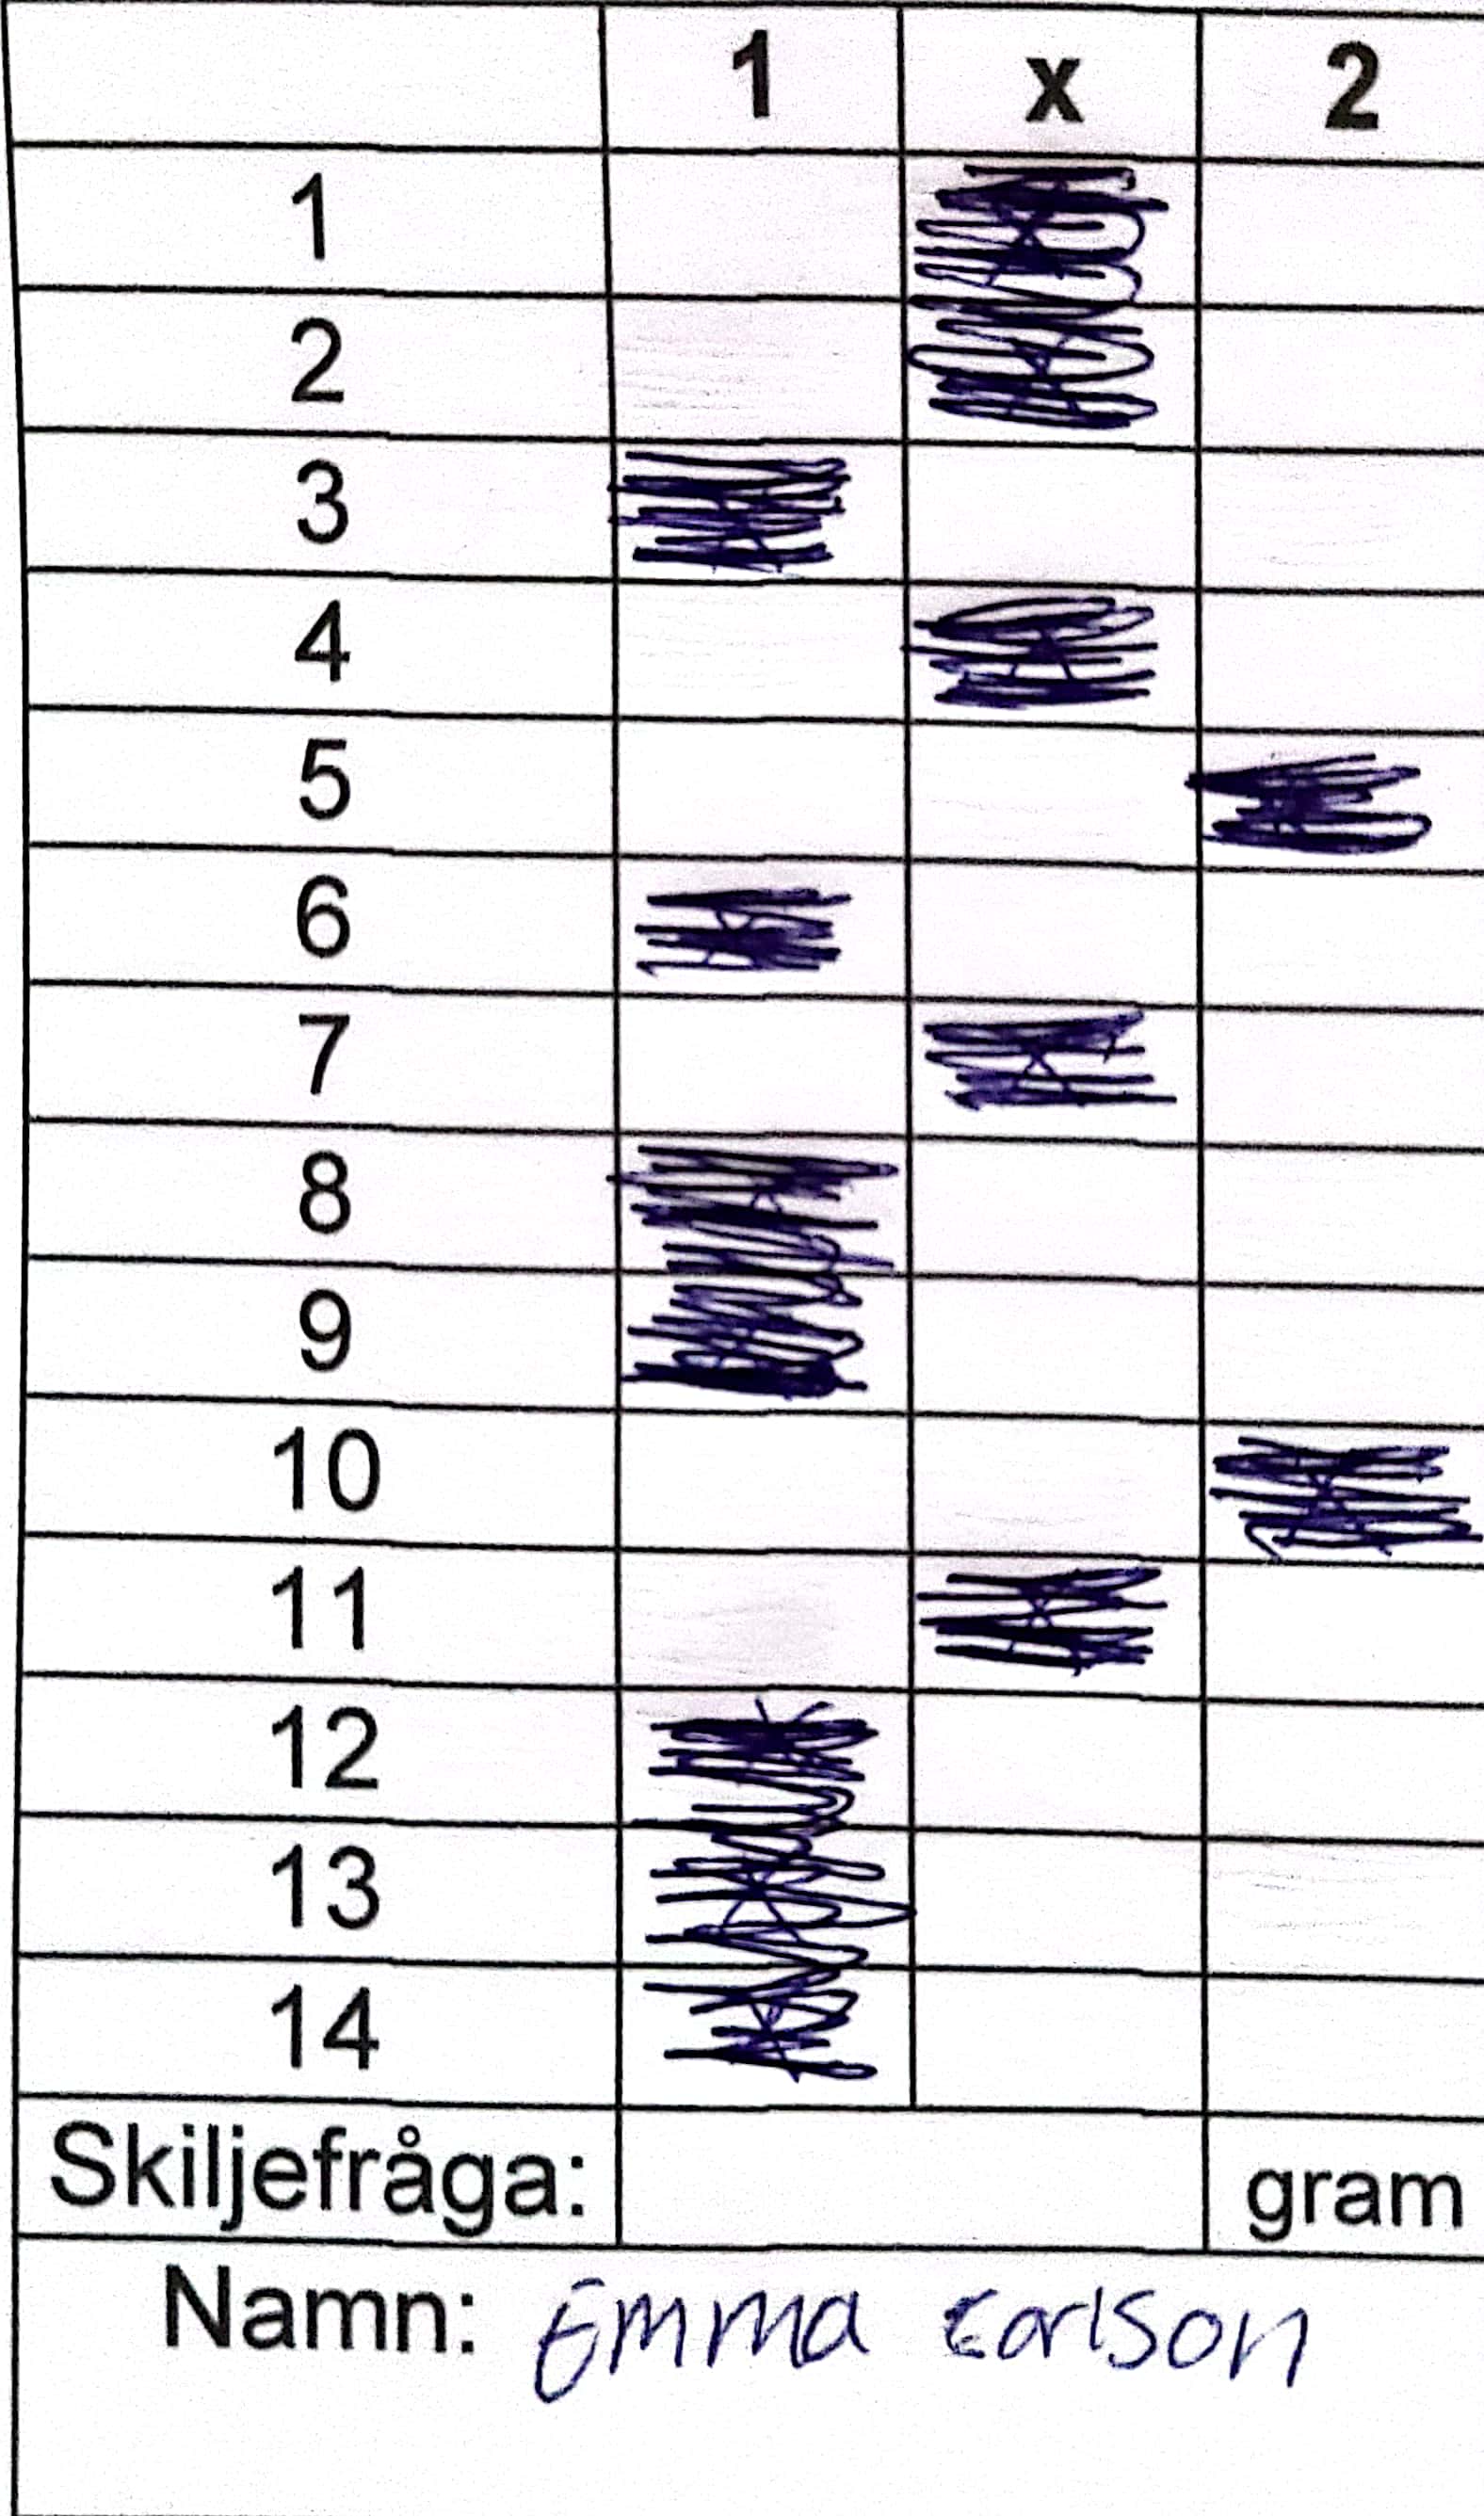 1 x 2
1
2
3
4
5
6
7
8
9
10
11
12
13
14
Skiljefråga: gram
Namn: Emma Carlson